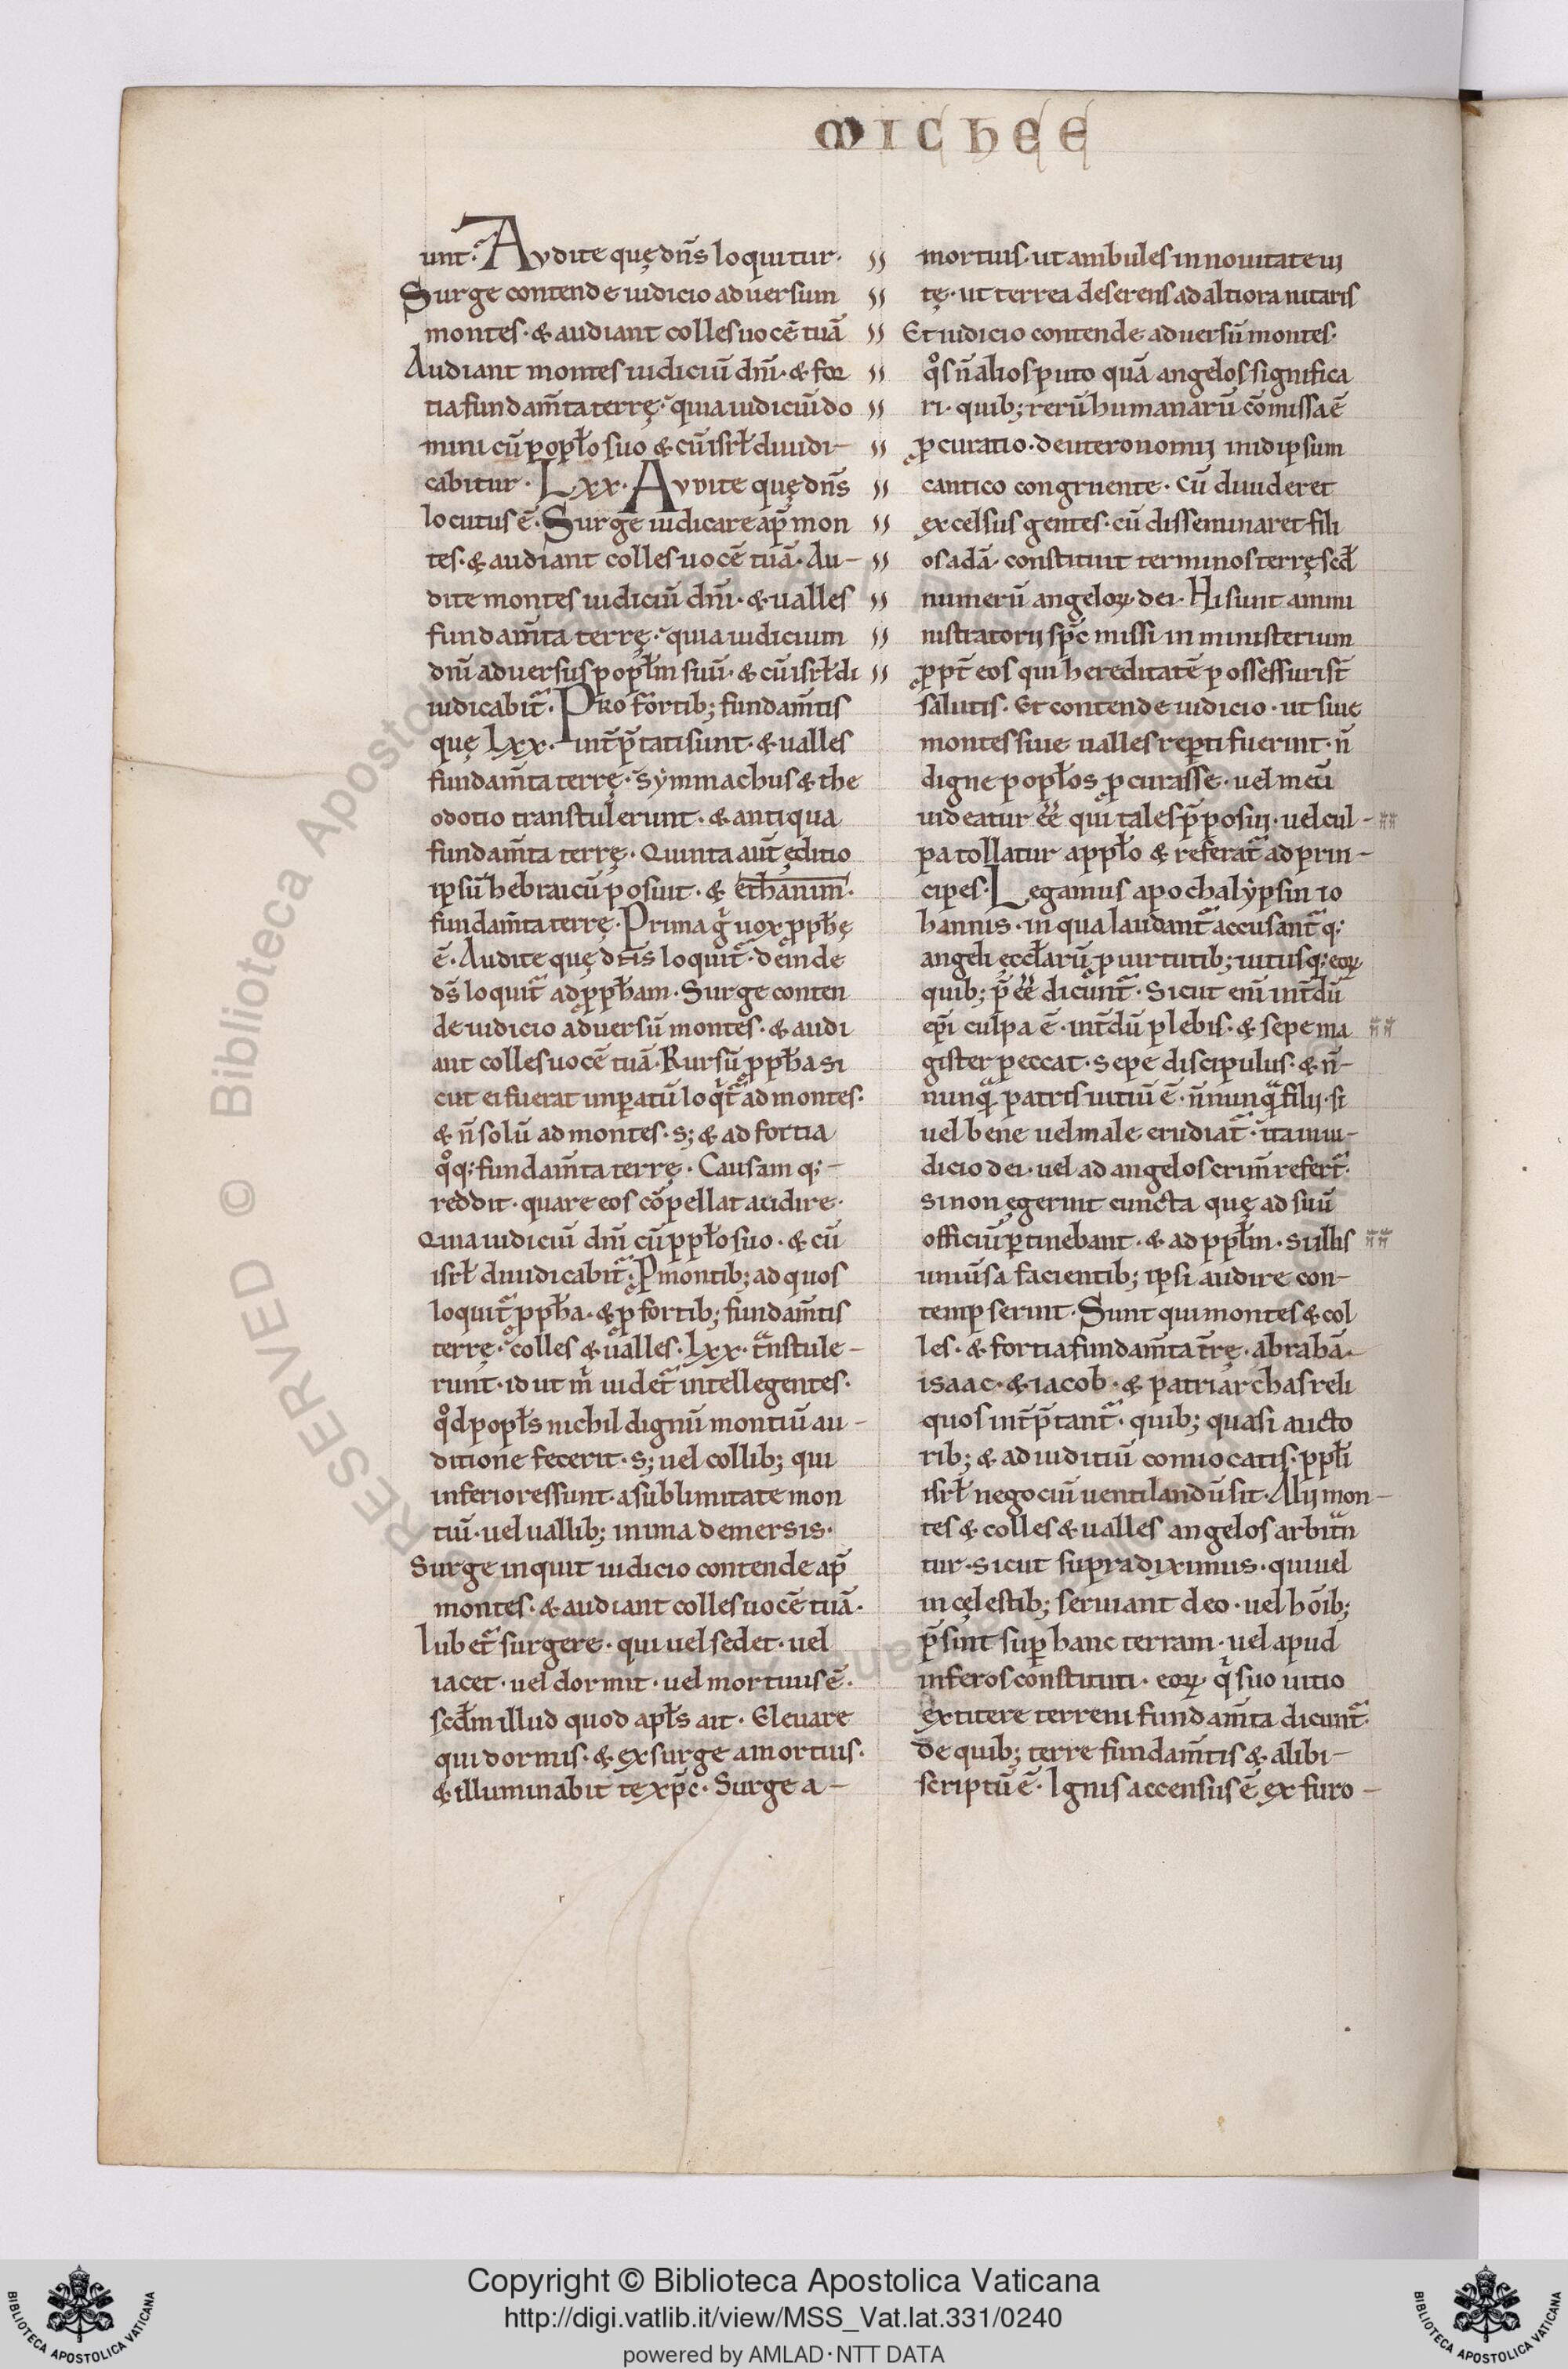 MICHEE
unt·᷑ Avdite quę dn̄s loquitur·
Surge contende iudicio aduersum
montes· & audiant colles uocē tuā
Audiant montes iudiciū dn̄i· & for
tia fundam̄ta terrę· quia iudiciū do
mini cū popl̄o suo & cū isrł diiudi-
cabitur· Lxx· Avdite quę dn̄s
locutus ē· Surge iudicare ap̄ mon
tes· & audiant colles uocē tuā· Au-
dite montes iudiciū dn̄i· & ualles
fundam̄ta terrę· quia iudicium
dn̄i aduersus popl̄m suū· & cū isrł di
iudicabit᷑· Pro fortib; fundam̄tis
quę Lxx· int̄p̄tati sunt· & ualles
fundam̄ta terrę· symmachus & the
odotio transtulerunt· & antiqua
fundam̄ta terrę· Quinta aut̄ ęditio
ipsū hebraicū posuit· & ethanim·
fundam̄ta terrę· Prima g̊ uox ꝓph̄ę
ē· Audite quę dn̄s loquit᷑· deinde
ds̄ loquit᷑ ad ꝓph̄am· Surge conten
de iudicio aduersū montes· & audi
ant colles uocē tuā· Rursū ꝓph̄a si
cut ei fuerat imꝑatū loqͥt᷑ ad montes·
& n̄ solū ad montes· s; & ad fortia
qͦq; fundam̄ta terrę· Causam q; -
reddit· quare eos cōpellat audire·
Quia iudiciū dn̄i cū ppl̄o suo· & cū
isrł diiudicabit᷑· P montib; ad quos
loquit᷑ ꝓph̄a· & ꝓ fortib; fundam̄tis
terrę· colles & ualles· Lxx· tᷓnstule-
runt· id ut mͥ uidet᷑ intellegentes·
qͦd popl̄s nichil dignū montiū au-
ditione fecerit· s; uel collib; qui
inferiores sunt· a sublimitate mon
tiū· uel uallib; in ima demersis·
Surge inquit iudicio contende ap̄
montes· & audiant colles uocē tuā·
Iubet᷑ surgere· qui uel sedet· uel
iacet· uel dormit· uel mortuus ē·
scd̄m illud quod apl̄s ait· Eleuare
qui dormis· & exsurge a mortuis·
& illuminabit te xp̄c· Surge a -
mortuis· ut ambules in nouitate ui
tę· ut terrea deserens ad altiora nitaris
Et iudicio contende aduersū montes·
qͦs n̄ alios puto quā angelos significa
ri· quib; rerū humanarū cōmissa ē
ꝓcuratio· deuteronomij in id ipsum
cantico congruente· Cū diuideret
excelsus gentes· cū disseminaret fili
os adā· constituit terminos terrę scd̄
numerū angeloꝝ dei· Hi sunt ammi
nistratorij sp̄c missi in ministerium
ꝓpt̄ eos qui hereditatē possessuri st̄
salutis· Et contende iudicio· ut siue
montes siue ualles reꝑti fuerint· n̄
digne popl̄os ꝓcurasse· uel meū
uideatur ēē qui tales p̄posui· uel cul-
pa tollatur a ppl̄o & referat᷑ ad prin-
cipes· Legamus apochalypsin io
hannis· in qua laudant᷑ accusant᷑ q;
angeli ęccl̄arū ꝓ uirtutib; uitiisq; eoꝝ
quib; p̄ēē dicunt᷑· Sicut eni int̄dū
ep̄i culpa ē· int̄dū plebis· & sepe ma
gister peccat· sepe discipulus· & n̄-
nunqᷓ patris uitiū ē· n̄nunqᷓ filij· si
uel bene uel male erudiat᷑· ita in iu-
dicio dei· uel ad angelos crim̄ refert᷑·
si non egerint cuncta quę ad suū
officiū ꝑtinebant· & ad ppl̄m· si illis
uniūsa facientib; ipsi audire con-
tempserint· Sunt qui montes & col
les· & fortia fundam̄ta t̄rę· abrahā·
isaac· & iacob· & patriarchas reli
quos int̄p̄tant᷑· quib; quasi aucto
rib; & ad iuditiū conuocatis· ppl̄i
isrł negociū uentilandū sit· Alij mon-
tes & colles & ualles angelos arbitᷓn
tur· sicut supra diximus· qui uel
in cęlestib; seruiant deo· uel hōib;
p̄sint suꝑ hanc terram· uel apud
inferos constituti· eoꝝ qͥ suo uitio
extitere terreni fundam̄ta dicunt᷑·
de quib; terre fundam̄tis & alibi-
scriptū ē· Ignis accensus ē ex furo-
RESERVED © Biblioteca Apostolica Vaticana
Copyright © Biblioteca Apostolica Vaticana
http://digi.vatlib.it/view/MSS_Vat.lat.331/0240
powered by AMLAD·NTT DATA
BIBLIOTECA APOSTOLICA VATICANA
BIBLIOTECA APOSTOLICA VATICANA